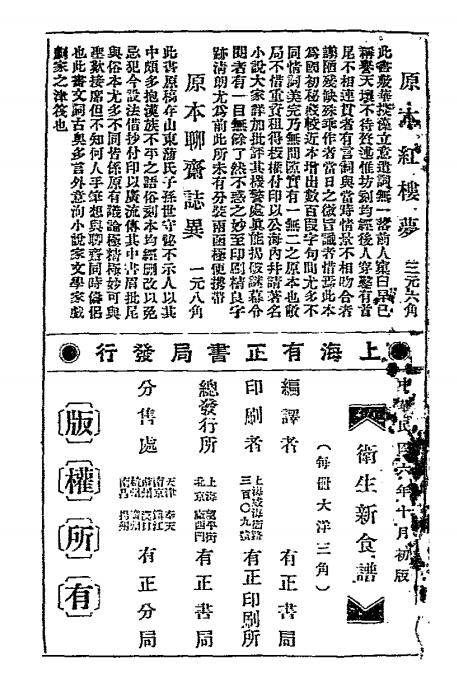 原本紅樓夢　三元六角
此書敷華掞藻立意遣詞無一落前人窠臼早已
稱譽天壤不待贅述惟坊刻均經後人穿鑿有首
尾不相連貫者有言詞與當時情景不相吻合者
謬陋殘缺殊乖作者當日之微旨識者惜焉此本
為國初秘鈔較近本增出數百段字句間尤多不
同情詞美完乃無間然實有一無二之原本也敝
局不惜重資租得板權付印以公海內并請著名
小說大家詳加批評其機警處真能揭破讀幕令
閱者有一目無餘了然不惑之妙至印刷精良字
跡清朗尤為前此所未有分裝兩函極便携帶
原本聊齋誌異　一元八角
此書原稿存山東蒲氏子孫世守秘不示人以其
中頗多抱漢族不平之語俗刻本均經刪改以免
忌犯今設法借抄付印以廣流傳其中書眉批尾
與俗本尤多不同皆係原有議論極精極妙可與
聖歎接席但不知何人手筆想與聊齋同時儔侶
也此書文詞古奧多言外意洵小說家文學家戲
劇家之津筏也
上海有正書局發行
中華民國六年十月初版
衛生新食譜
（每冊大洋三角）
編譯者　有正書局
印刷者　上海威海衛路三百〇九號　有正印刷所
總發行所　上海望平街　北京廠西門　有正書局
分售處　天津　奉天　南京　鎮江　蘇州　漢口　杭州　南昌　揚州　有正分局
版權所有